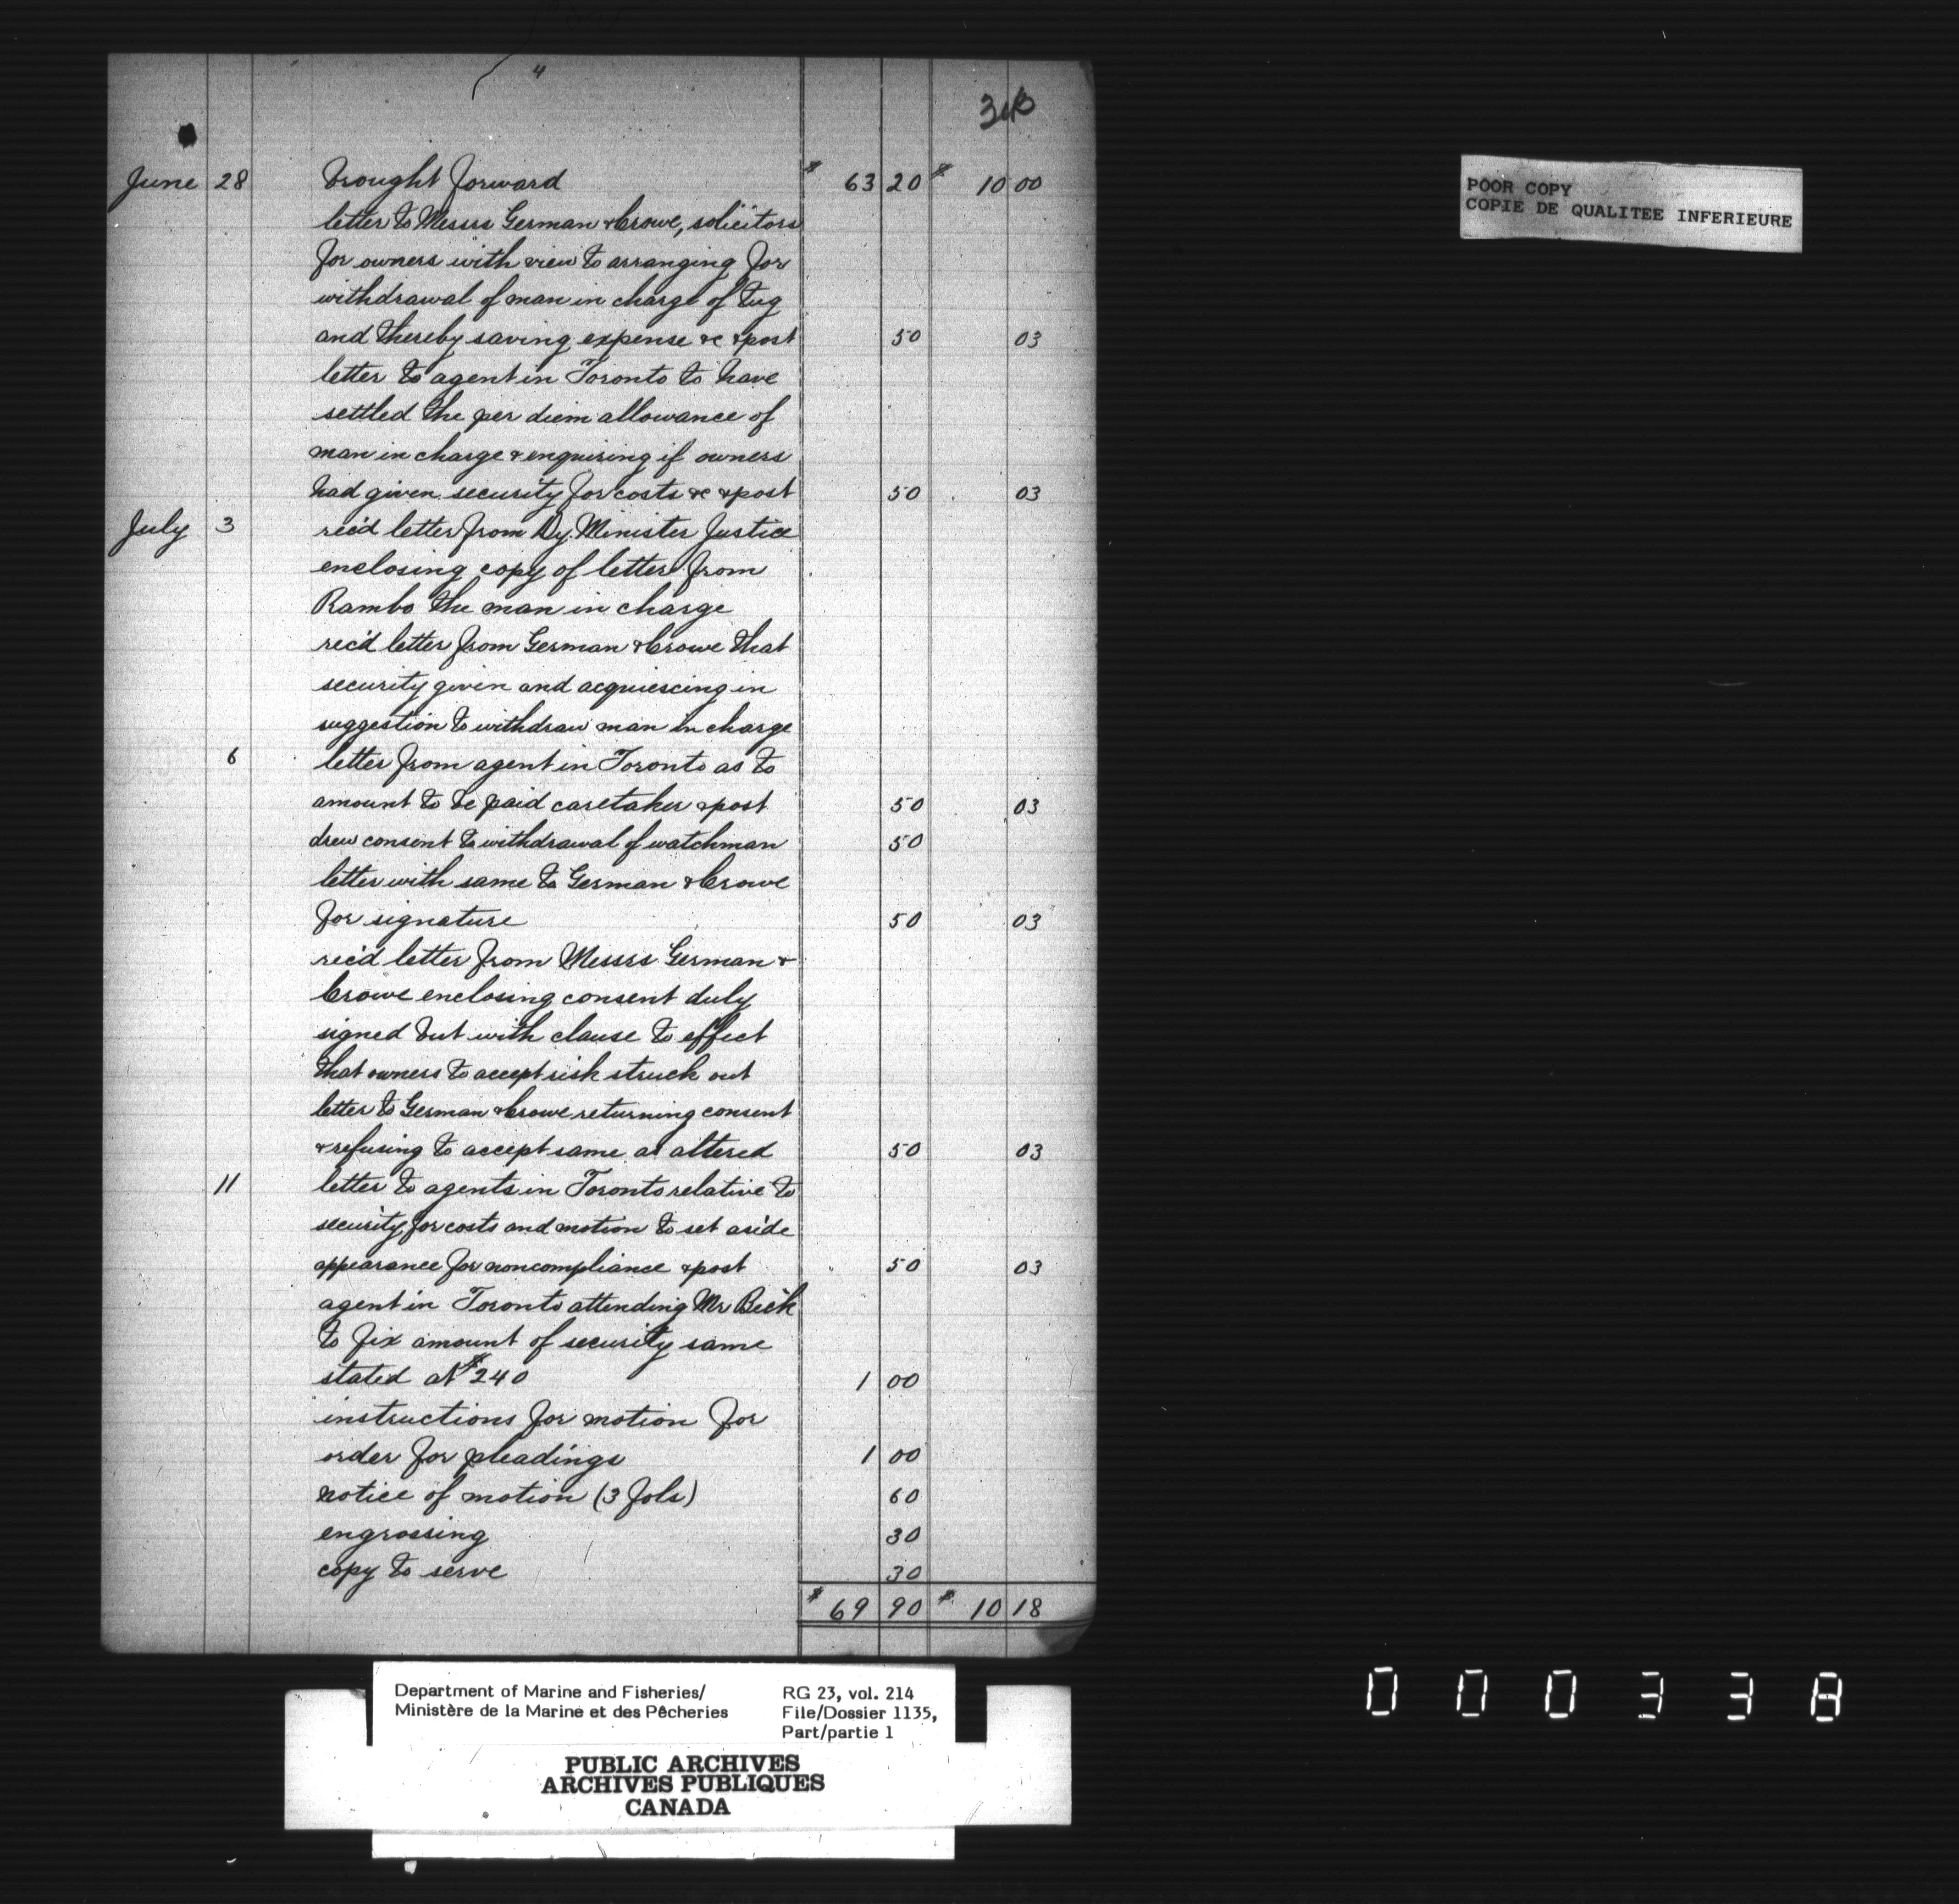 4
June 28 brought forward $ 63 20 $ 10 00
letter to Messrs German & Crowe, solicitors
for owners with view to arranging for
withdrawal of man in charge of tug
and thereby saving expense &c & post 50 03
letter to agent in Toronto to have
settled the per diem allowance of
man in charge & enquiring if owners
had given security for costs &c & post 50 03
July 3 rec'd letter from Dy. Minister Justice
enclosing copy of letter from
Rambo the man in charge
rec'd letter from German & Crowe that
security given and acquiescing in
suggestion to withdraw man in charge
6 letter from agent in Toronto as to
amount to be paid caretaker & post 50 03
drew consent to withdrawal of watchman 50
letter with same to German & Crowe
for signature 50 03
rec'd letter from Messrs German &
Crowe enclosing consent duly
signed but with clause to effect
that owners to accept risk struck out
letter to German & Crowe returning consent
& refusing to accept same as altered 50 03
11 letter to agents in Toronto relative to
security for costs and motion to set aside
appearance for noncompliance & post 50 03
agent in Toronto attending Mr
to fix amount of security same
stated at $240 1 00
instructions for motion for
order for pleadings 1 00
notice of motion (3 fols) 60
engrossing 30
copy to serve 30
$ 69 90 $ 10 18
POOR COPY
COPIE DE QUALITEE INFERIEURE
Department of Marine and Fisheries/
Ministère de la Marine et des Pêcheries
RG 23, vol. 214
File/Dossier 1135,
Part/partie 1
PUBLIC ARCHIVES
ARCHIVES PUBLIQUES
CANADA
000338